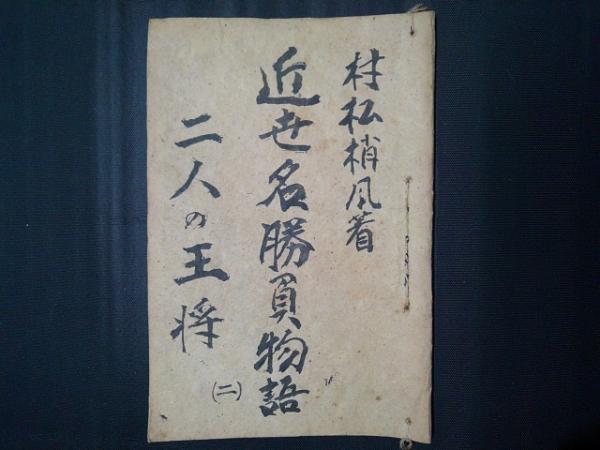 村松梢風著
近世名勝負物語
二人の王将
(二)